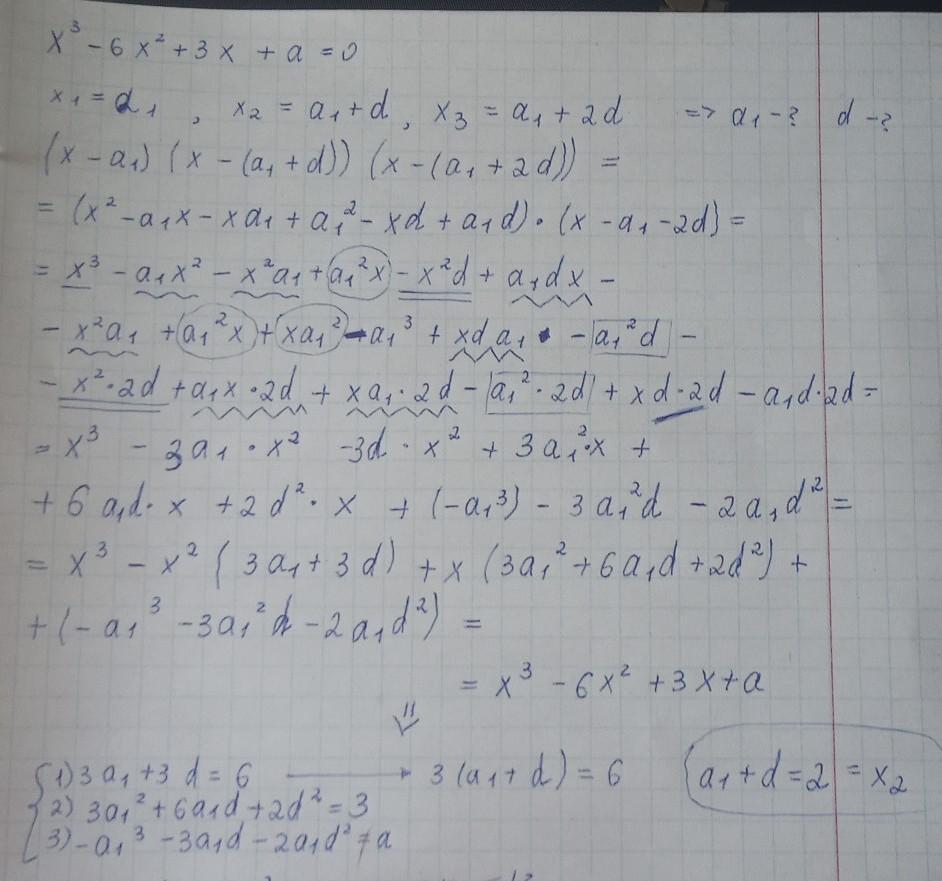 x³ - 6x² + 3x + a = 0
x₁ = a₁ , x₂ = a₁ + d , x₃ = a₁ + 2d => a₁ - ? d - ?
(x - a₁) (x - (a₁ + d)) (x - (a₁ + 2d)) =
= (x² - a₁x - xa₁ + a₁² - xd + a₁d) · (x - a₁ - 2d) =
= x³ - a₁x² - x²a₁ + a₁²x - x²d + a₁dx -
- x²a₁ + a₁²x + xa₁² - a₁³ + xda₁ - a₁²d -
- x²·2d + a₁x·2d + xa₁·2d - a₁²·2d + xd·2d - a₁d·2d =
= x³ - 3a₁·x² - 3d·x² + 3a₁²·x +
+ 6a₁d·x + 2d²·x + (-a₁³) - 3a₁²d - 2a₁d² =
= x³ - x² (3a₁ + 3d) + x (3a₁² + 6a₁d + 2d²) +
+ (-a₁³ - 3a₁²d - 2a₁d²) =
= x³ - 6x² + 3x + a
⇓
1) 3a₁ + 3d = 6 → 3(a₁ + d) = 6 a₁ + d = 2 = x₂
2) 3a₁² + 6a₁d + 2d² = 3
3) -a₁³ - 3a₁d - 2a₁d² = a